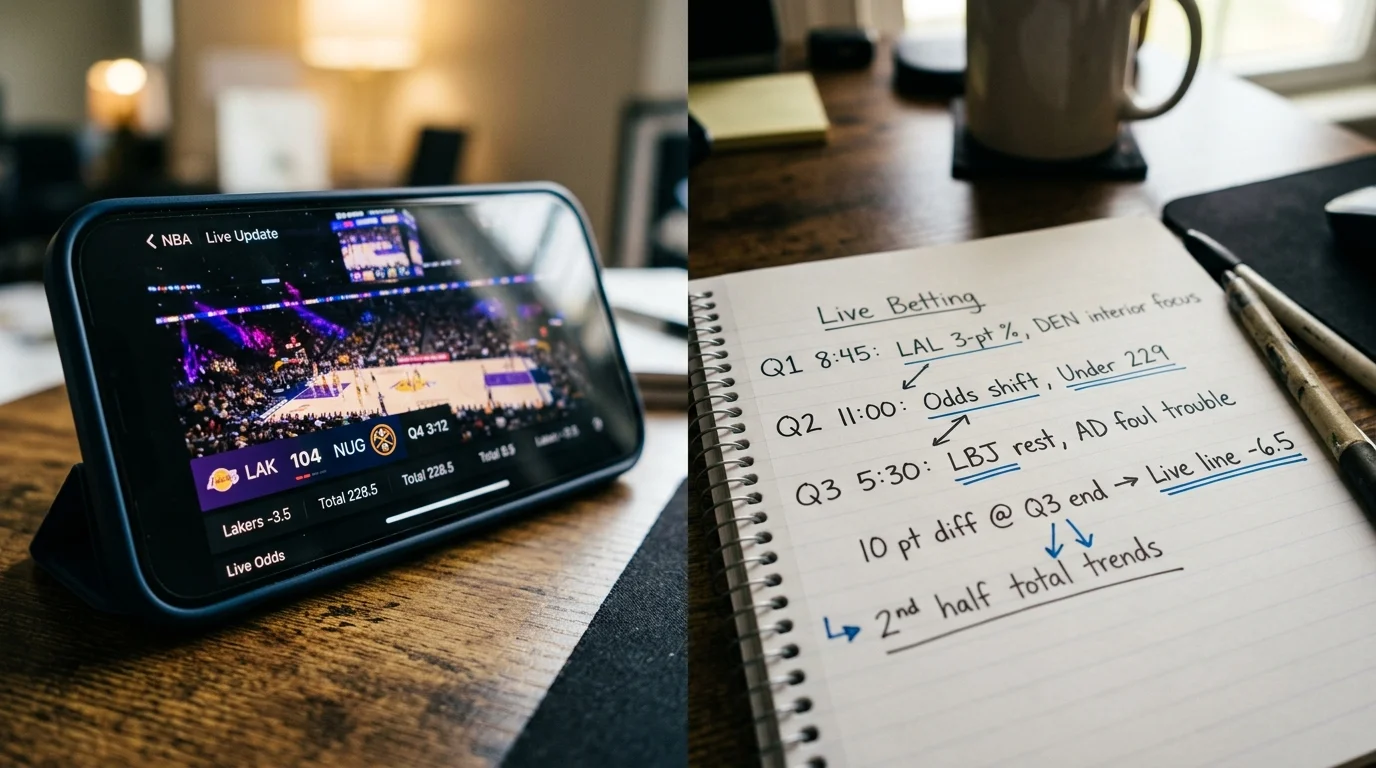 NBA Live Update
LAK 104 NUG Q4 3:12
Lakers -3.5 Total 228.5 Total 228.5 Total
Live Odds
Live Betting
Q1 8:45: LAL 3-pt %, DEN interior focus
Q2 11:00: Odds shift, Under 229
Q3 5:30: LBJ rest, AD foul trouble
10 pt diff @ Q3 end → Live line -6.5
↳ 2nd half total trends